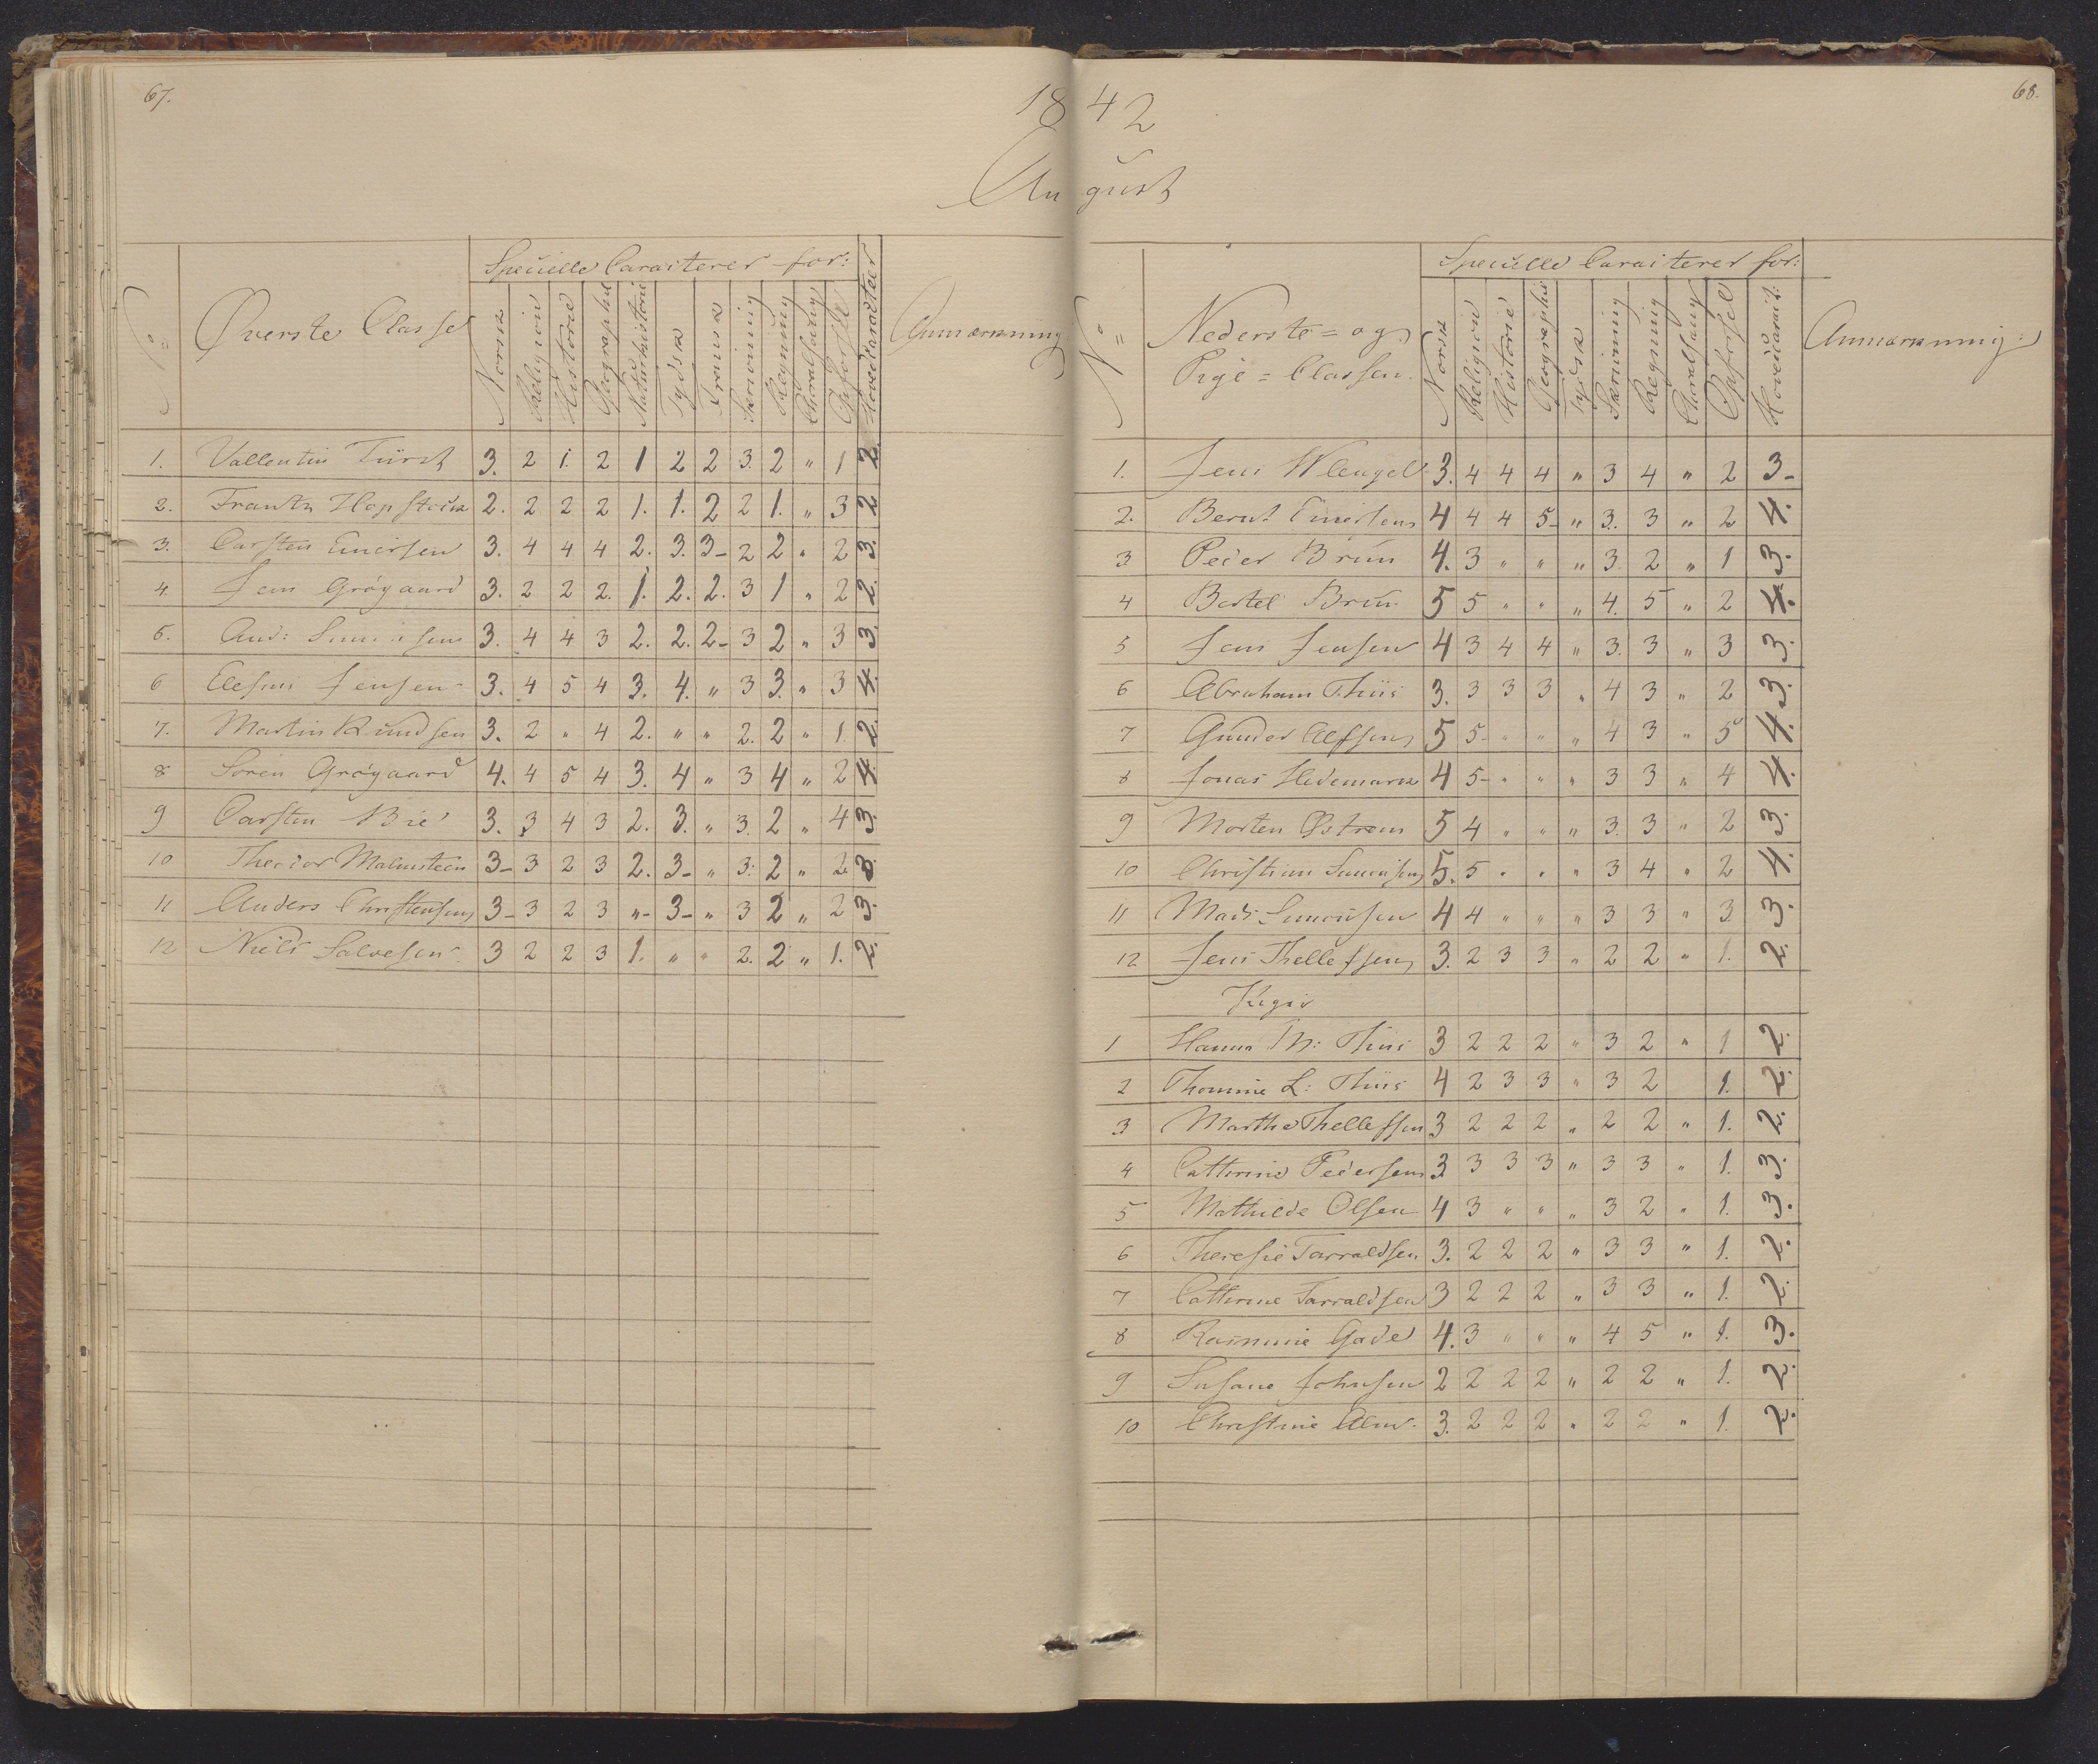 67.
18 42
68.
August
Specielle Caracterer for:
No
Øverste Classe
Norsk
Religion
Historie
Geographie
Naturhistorie
Tydsk
Fransk
Skrivning
Regning
Choralsang
Opførsel
Hovedcaracteer
Anmærkning
1. Vallentin Fürst 3. 2 1. 2 1 2 2 3. 2 " 1 2.
2. Frantz Hopstock 2. 2 2 2 1. 1. 2 2 1. " 3 2
3. Carsten Enersen 3. 4 4 4 2. 3. 3- 2 2 " 2 3.
4. Jens Grøgaard 3. 2 2 2. 1. 2. 2. 3 1 " 2 2.
5. And: Simonsen 3. 4 4 3 2. 2. 2- 3 2 " 3 3.
6 Jensen 3. 4 5 4 3. 4. " 3 3. " 3 4.
7. Martin Knudsen 3. 2 " 4 2. " " 2. 2 " 1. 2.
8 Søren Grøgaard 4. 4 5 4 3. 4 " 3 4 " 2 4.
9 Carsten Brie 3. 3 4 3 2. 3. " 3. 2 " 4 3.
10 Theodor Malmsteen 3- 3 2 3 2. 3- " 3. 2 " 2. 3.
11 Anders Christensen 3- 3 2 3 "- 3- " 3 2 " 2 3.
12 Niels Salvesen 3 2 2 3 1. " " 2. 2 " 1. 2.
Specielle Caracterer for:
No
Nederste= og
Pige=Classen.
Norsk
Religion
Historie
Geographie
Tydsk
Skrivning
Regning
Choralsang
Opførsel
Hovedcaract:
Anmærkning:
1. Jens Wlengel 3. 4 4 4 " 3 4 " 2 3-
2. Bernt Enersen 4 4 4 5- " 3. 3 " 2 4.
3 Peder Brun 4. 3 " " " 3. 2 " 1 3.
4 Bertel Brun 5 5 " " " 4. 5 " 2 4.
5 Jens Jensen 4 3 4 4 " 3. 3 " 3 3.
6 Abraham Thiis 3. 3 3 3 " 4 3 " 2 3.
7 Gunder Alfsen 5 5- " " " 4 3 " 5 4.
8 Jonas Hedemark 4 5- " " " 3 3 " 4 4.
9 Morten Østrem 5 4 " " " 3. 3 " 2 3.
10 Christian Simonsen 5. 5 " " " 3 4 " 2 4.
11 Mads Simonsen 4 4 " " " 3 3 " 3. 3.
12 Jens Thellefsen 3. 2 3 3 " 2 2 " 1. 2.
Piger
1 Hanna M: Thiis 3 2 2 2 " 3 2 " 1 2.
2 Thomine L: Thiis 4 2 3 3 " 3 2 1. 2.
3 Marthe Thellefsen 3 2 2 2 " 2 2 " 1. 2.
4 Cathrine Pedersen 3 3 3 3 " 3 3 " 1. 3.
5 Mathilde Olsen 4 3 " " " 3 2 " 1. 3.
6 Theresie Tarraldsen 3. 2 2 2 " 3 3 " 1. 2.
7 Cathrine Tarraldsen 3 2 2 2 " 3 3 " 1. 2.
8 Rasmine Gade 4. 3 " " " 4 5 " 1. 3.
9 Susane Johnsen 2 2 2 2 " 2 2 " 1. 2.
10 Christine Alm. 3. 2 2 2 " 2 2 " 1. 2.